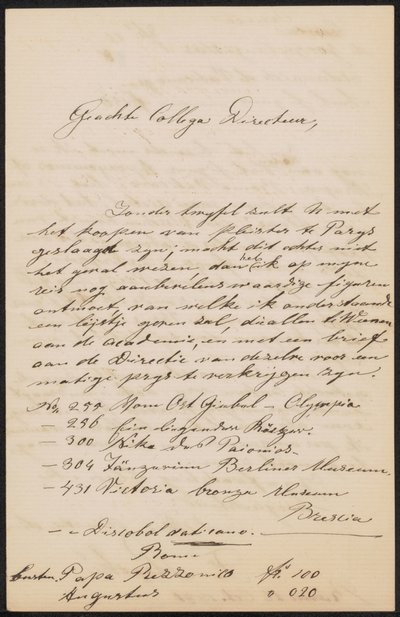 Geachte Collega Directeur,
Zonder twyfel zult U met
het koopen van pleister te Parys
geslaagd zyn; mocht dit echter niet
het geval wezen, dan heb ik op myne
reis nog aanbevelenswaardige figuren
ontmoet, van welke ik onderstaande
een lijstje geven zal, die allen te Weenen
aan de academie, en met een brief
aan de Directie van dezelve voor een
matige prys te verkrijgen zyn.
No 252 Vom Ost Giebel - Olympia
- 256 Ein liegender
- 300 Nika des Paionios
- 304 Tänzerinn Berliner Museum.
- 431 Victoria bronze Museum
Brescia
- " Discobol Vaticano.
Rome
busten. Papa Rezzonico fr 100
Augustus " 020